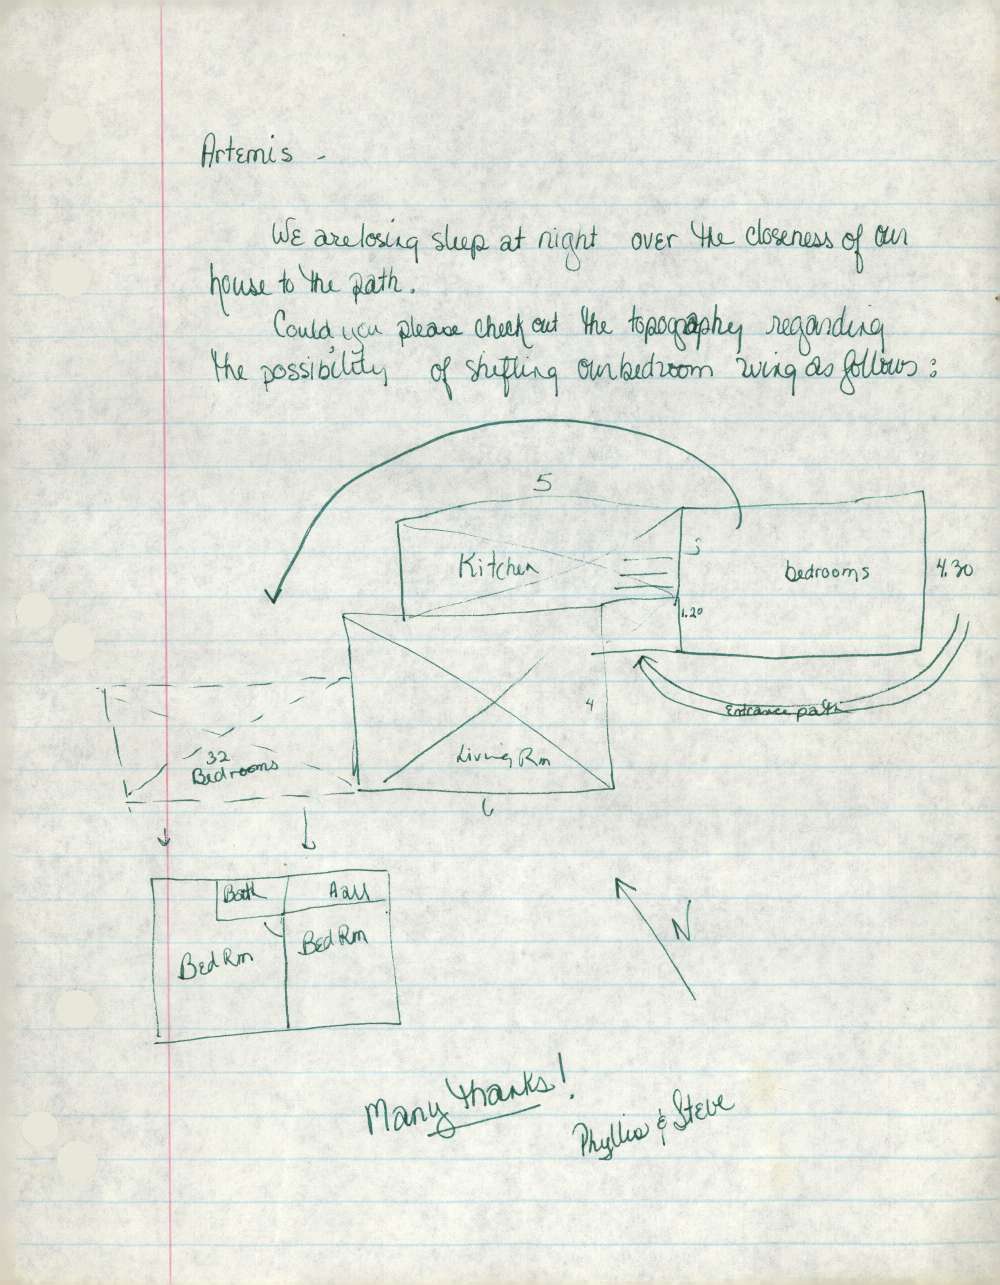 Artemis -
We are losing sleep at night over the closeness of our
house to the path.
Could you please check out the topography regarding
the possibility of shifting our bedroom wing as follows:
5
Kitchen
3
bedrooms
4.30
1.20
Entrance path
4
Living Rm
6
32
Bedrooms
Bath
Hall
Bed Rm
Bed Rm
N
Many thanks!
Phyllis & Steve